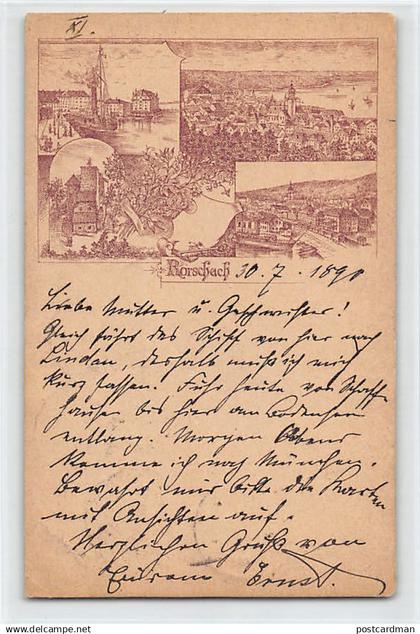 XI.
Rorschach 30.7.1890
Liebe Mutter u. Geschwister!
Gleich fährt das Schiff von hier nach
Lindau, deshalb muß ich mich
kurz fassen. Fuhr heute von Schaff-
hausen bis hier am Bodensee
entlang. Morgen Abend
komme ich nach München.
Bewahrt mir bitte die Karten
mit Ansichten auf.
Herzlichen Gruß von
Eurem Ernst.
© delcampe.net
postcardman